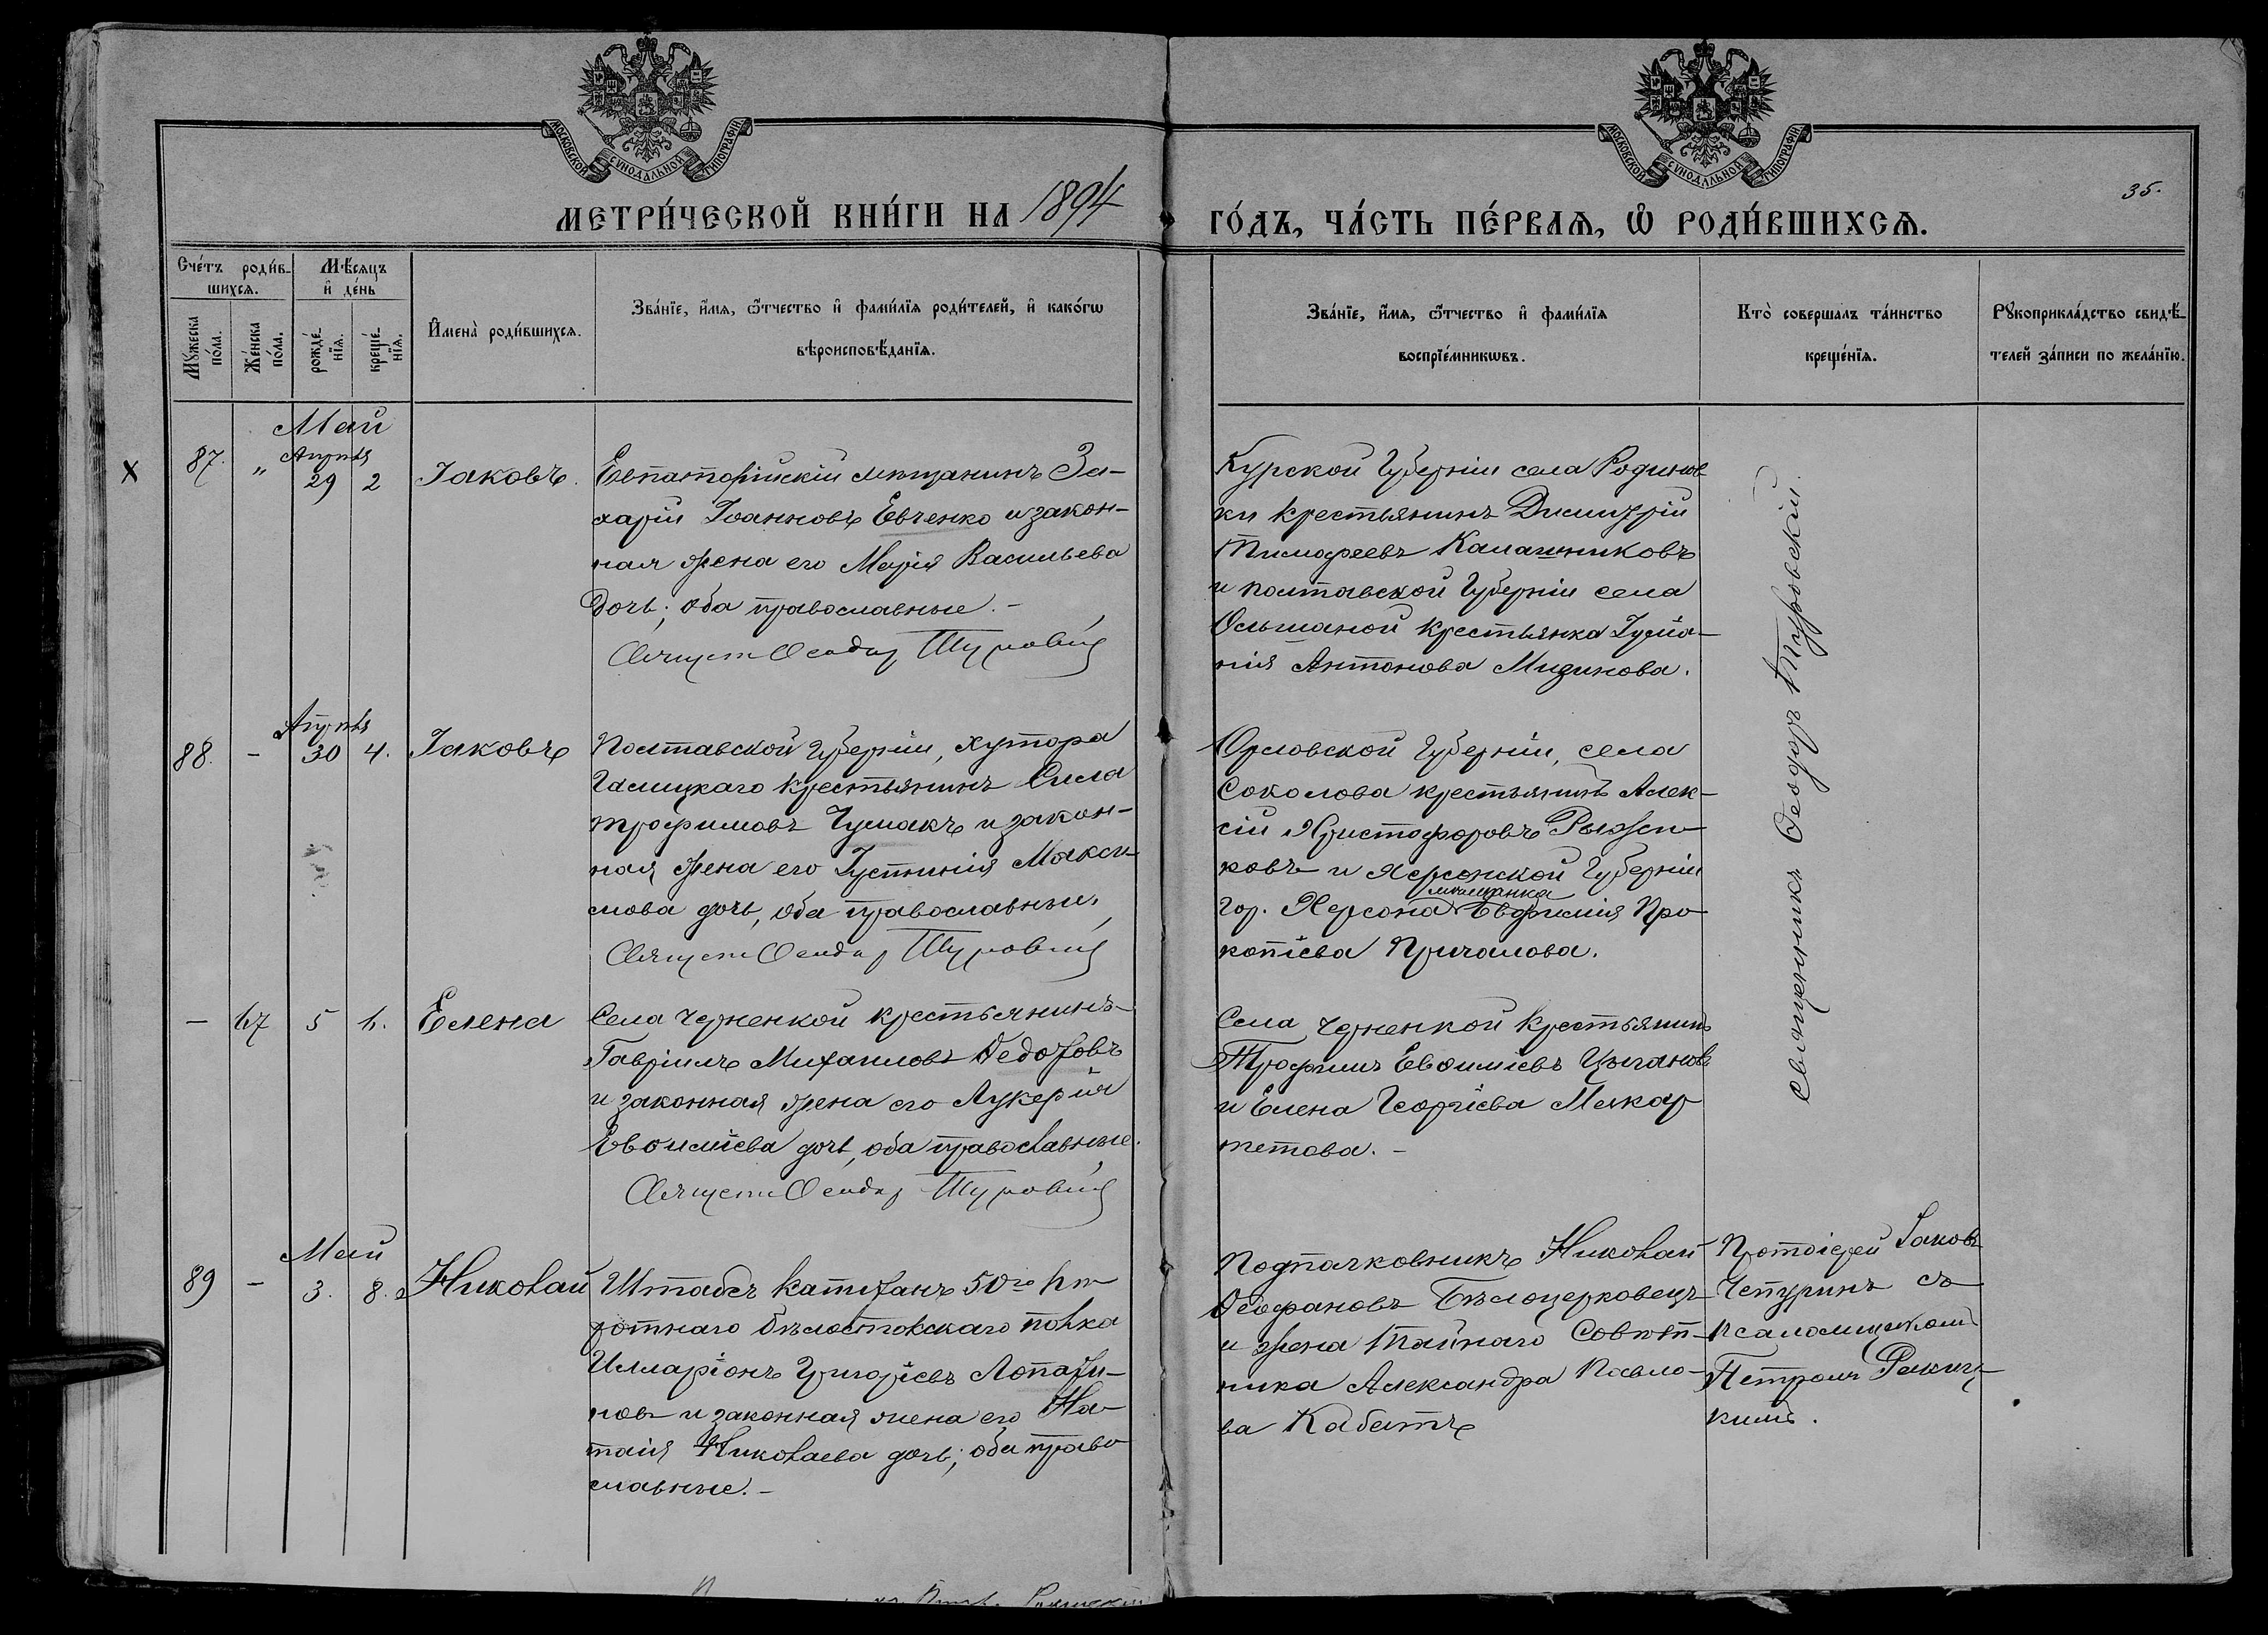 МОСКОВСКОЙ СѴНОДАЛЬНОЙ ТИПОГРАФІИ
МОСКОВСКОЙ СѴНОДАЛЬНОЙ ТИПОГРАФІИ
35.
МЕТРИ́ЧЕСКОЙ КНИ́ГИ НА 1894
ГО́ДЪ, ЧА́СТЬ ПЕ́РВАѦ, Ѡ҆ РОДИ́ВШИХСѦ.
Сче́тъ роди́в-
шихсѧ.
Мѣ́сѧцъ
и҆ де́нь
Мꙋ́жеска
по́ла.
Же́нска
по́ла.
рожде́-
нїѧ.
креще́-
нїѧ.
И҆мена̀ роди́вшихсѧ.
Зва́нїе, и҆́мѧ, ѻ҆́тчество и҆ фами́лїѧ роди́телей, и҆ како́гѡ
вѣроисповѣ́данїѧ.
Зва́нїе, и҆́мѧ, ѻ҆́тчество и҆ фами́лїѧ
воспрїе́мникѡвъ.
Кто̀ соверша́лъ та́инство
креще́нїѧ.
Рꙋкоприкла́дство свидѣ́-
телей за́писи по жела́нїю.
Май
Апрѣля
X 87. „ 29 2 Іаковъ.
Евпаторійскій мѣщанинъ За-
харій Іоанновъ Евченко и закон-
ная жена его Марія Васильева
дочь; оба православные. -
Священ Феодор Туровскій
Курской Губерніи села Родинов
ки крестьянинъ Димитрій
Тимофеевъ Калашниковъ
и Полтавской Губерніи села
Ольшаной крестьянка Іулiа-
нія Антонова Мизинова.
Священникъ Феодоръ Туровскій.
Апрѣля
88. - 30 4. Іаковъ
Полтавской Губерніи, хутора
Галицкаго крестьянинъ Сила
Трофимовъ Чумакъ и закон-
ная жена его Іустинія Макси-
мова дочь, оба православные.
Священ Феодор Туровскій
Орловской Губерніи, села
Соколова крестьянинъ Алек-
сій Христофоровъ Рыжен-
ковъ и Херсонской Губерніи
мѣщанка
гор. Херсона Евфимія Про-
копіева Причалова.
- 67 5 6. Елена
Села Черненкой крестьянинъ
Гавріилъ Михаиловъ Федоровъ
и законная жена его Лукерія
Евѳиміева дочь, оба православные.
Священ Феодор Туровскій
Села Черненкой крестьянинъ
Трофимъ Евѳиміевъ Цыгановъ
и Елена Георгіева Макар-
тетова. -
Май
89 - 3. 8. Николай
Штабсъ Капитанъ 50го пѣ
хотнаго Бѣлостокскаго полка
Илларіонъ Григоріевъ Лопати-
новъ и законная жена его На-
талія Николаева дочь; оба право
славные. -
Подполковникъ Николай
Феофановъ Бѣлоцерковецъ
и жена Тайнаго Совѣт-
ника Александра Павло-
ва Кабатъ
Протоіерей Іаковъ
Чепуринъ съ
псаломщикомъ
Петромъ